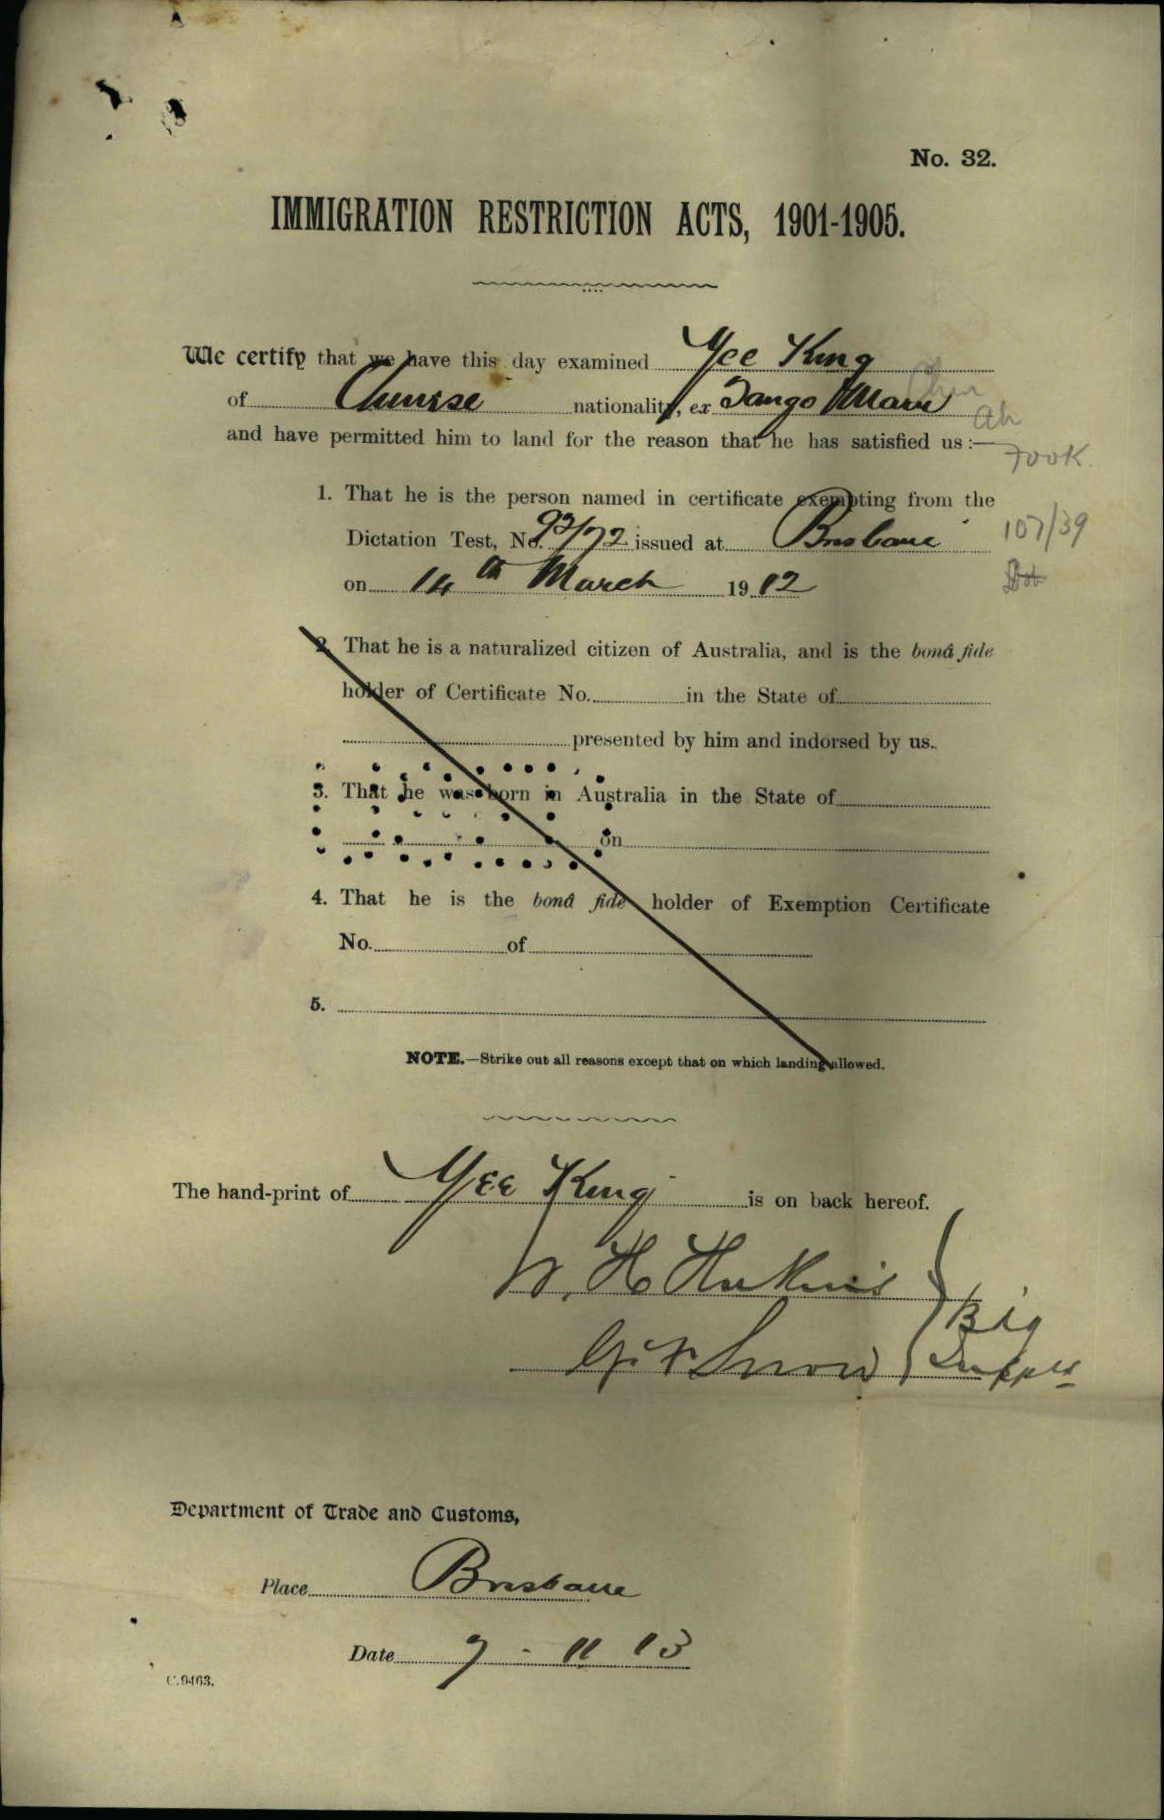 No. 32.
IMMIGRATION RESTRICTION ACTS, 1901-1905.
We certify that we have this day examined Yee King
of Chinese nationality, ex Tango Maru
Chin
and have permitted him to land for the reason that he has satisfied us :—
Ah
Fook.
1. That he is the person named in certificate exempting from the
Dictation Test, No. 93/72 issued at Brisbane
107/39
on 14th March 1912
2. That he is a naturalized citizen of Australia, and is the bonâ fide
holder of Certificate No. in the State of
presented by him and indorsed by us.
3. That he was born in Australia in the State of
on
4. That he is the bonâ fide holder of Exemption Certificate
No. of
5.
NOTE.—Strike out all reasons except that on which landing allowed.
The hand-print of Yee King is on back hereof.
W. H. 
G. F. Snow
Department of Trade and Customs,
Place Brisbane
Date 7 - 11 13
C.9463.